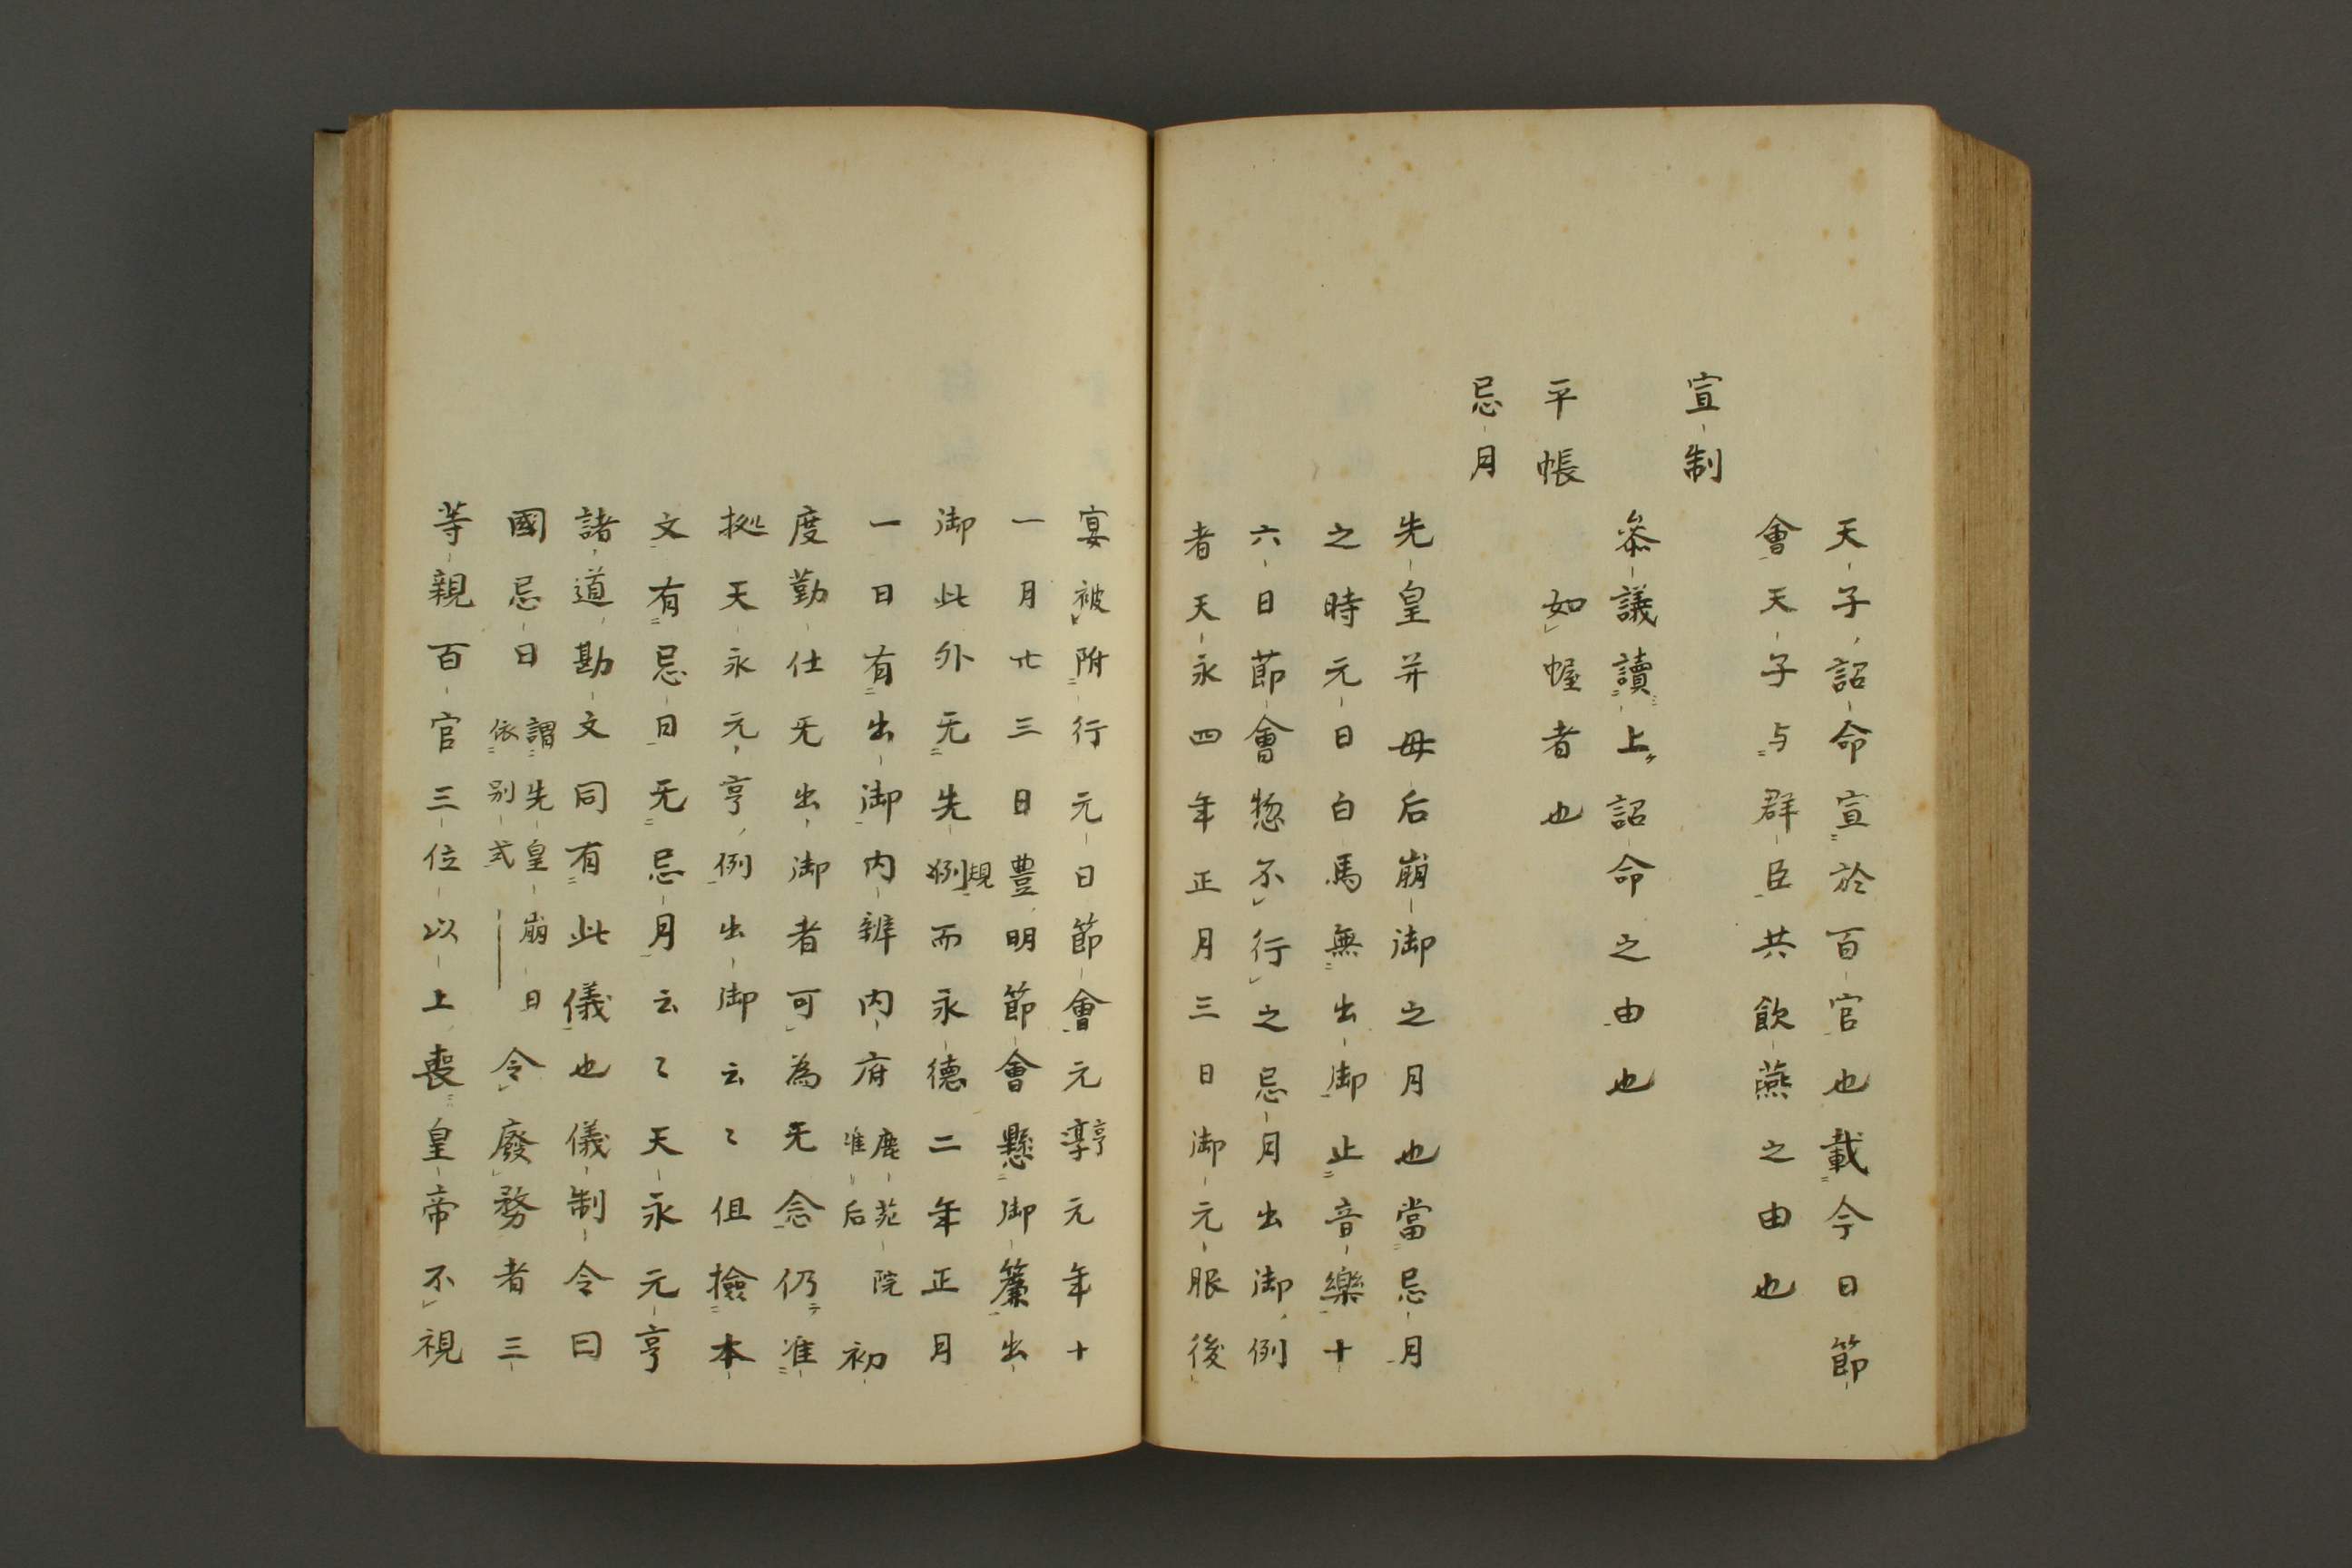 天子詔命宣於百官也載今日節
會天子与群臣共飲燕之由也
宣制
叅議讀上詔命之由也
平帳
如幄者也
忌月
先皇并母后崩御之月也當忌月
之時元日白馬無出御止音樂十
六日節會惣不行之忌月出御例
者天永四年正月三日御元服後
宴被附行元日節會元淳亨元年十
一月廿三日豊明節會懸御簾出
御此外无先例規而永德二年正月
一日有出御内辨内府鹿苑院准后初
度勤仕旡出御者可為旡念仍准
拠天永元亨例出御云〻但撿本
文有忌日旡忌月云〻天永元亨
諸道勘文同有此儀也儀制令曰
國忌日謂先皇崩日依別式令廢務者三
等親百官三位以上喪皇帝不視